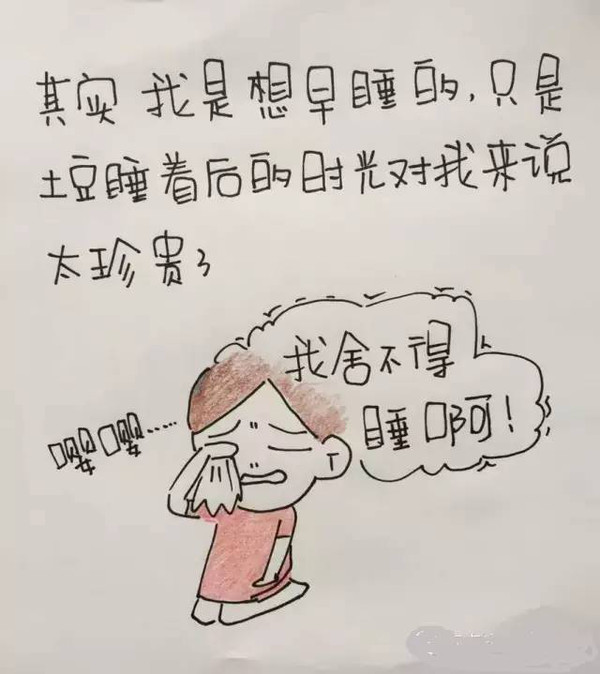 其实我是想早睡的,只是
土豆睡着后的时光对我来说
太珍贵了
我舍不得
睡啊!
嘤嘤……